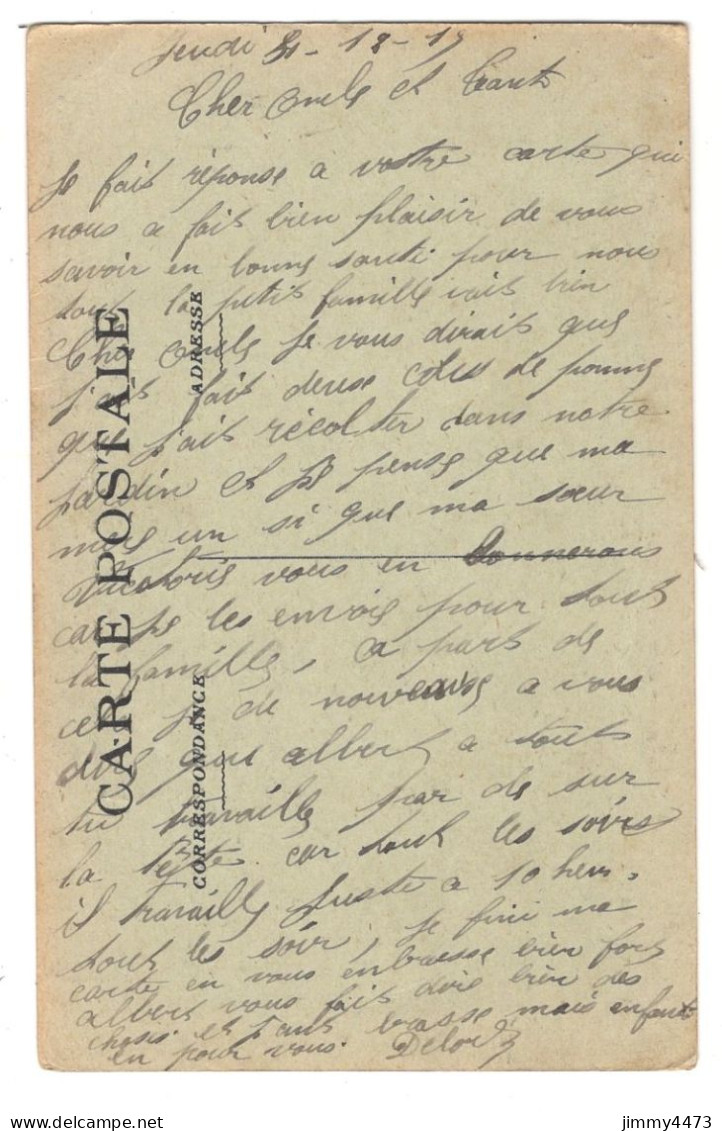 Jeudi 12-19
Cher oncle et tante
Je fait réponse a votre carte qui
nous a fait bien plaisir de vous
savoir en bonne santé pour nous
tout la petit famille vait bien
Cher oncle Je vous dirait que
j'ait fait deux de pomme
que j'ait récolter dans notre
Jardin et Je pense que ma
un si que ma sœur
vous en donnerons
car je les envois pour tout
la famille, a part de
cela de nouveaux a vous
dire que albert a tout
travaille par de sur
la tête car tout les soirs
il travaille Juste a 10 heur.
tout les soir, Je fini ma
carte en vous enbrasse bien fort
albert vous fait dire bien des
chosis et mais enfant
en pour vous.
CARTE POSTALE
CORRESPONDANCE
ADRESSE
jimmy4473